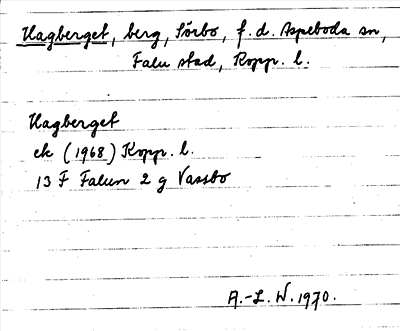 Hagberget, berg, Sörbo, f.d. Aspeboda sn,
Falu stad, Kopp. l.
Hagberget
ek (1968) Kopp. l.
13 F Falun 2 g Vassbo
A.-L. W. 1970.